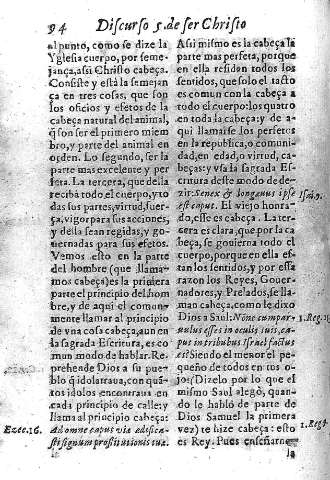 94 Discurso 5. de ser Christo
al punto, como se dize la
Yglesia cuerpo, por seme
jança, assi Christo cabeça.
Consiste y está la semejan
ça en tres cosas, que son
los oficios y efetos de la
cabeça natural del animal,
q̃ son ser el primero miem
bro, y parte del animal en
orden. Lo segundo, ser la
parte mas excelente y per
feta. La tercera, que della
recibā todo el cuerpo, y to
das sus partes, virtud, fuer
ça, vigor para sus acciones,
y della sean regidas, y go
uernadas para sus efetos.
Vemos esto en la parte
del hombre (que llama
mos cabeça) es la primera
parte el principio del hom
bre, y de aqui el comun
mente llamar al principio
de vna cosa cabeça, aun en
la sagrada Escritura, es co
mun modo de hablar. Re
prehende Dios a su pue
blo q̃ idolatraua, con quā
tos idolos encontraua en
cada principio de calle: y
llama al principio cabeça:
Ezec. 16. Ad omne caput viæ ædifica-
sti signum prostitutionis tuæ.
Assi mismo es la cabeça la
parte mas perfeta, porque
en ella residen todos los
sentidos, que solo el tacto
es comun con la cabeça a
todo el cuerpo: los quatro
en toda la cabeça: y de a-
qui llamase los perfetos
en la republica, o comuni
dad, en edad, o virtud, ca-
beças: y vsa la sagrada Es
critura deste modo de de-
zir: Senex & longæuus ipse Isai. 9.
est caput. El viejo honra-
do, esse es cabeça. La ter-
cera es clara, que por la ca
beça, se gouierna todo el
cuerpo, porque en ella es-
tan los sentidos, y por essa
razon los Reyes, Gouer-
nadores, y Prelados, se lla-
man cabeça, como le dixo
Dios a Saul: Nōne cum par- 1. Reg. 15
uulus esses in oculis tuis, ca-
put in tribubus Israel factus
es? Siendo el menor el pe
queño de todos en tus o-
jos (Dizelo por lo que el
mismo Saul alegò, quan-
do le habló de parte de
Dios Samuel la primera
vez) te hize cabeça: esto 1. Reg. 9
es Rey. Pues enseñarne
la